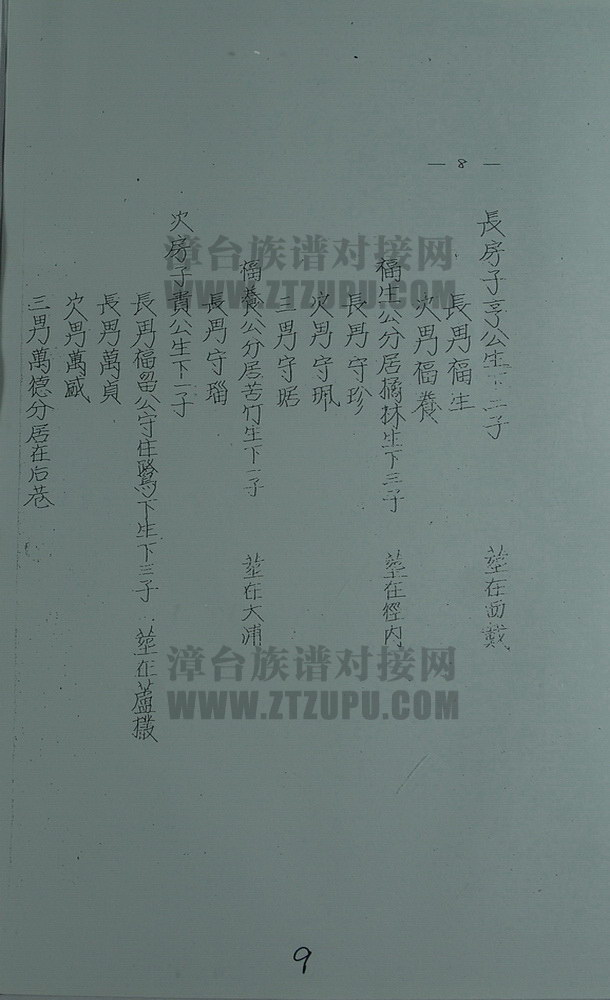 — 8 —
長房子亨公生下二子 塟在西戴
長男福生
次男福養
福生公分居橘林生下三子 塟在徑内
長男守珍
次男守珮
三男守琚
福養公分居苦竹生下一子 塟在大浦
長男守瑙
次房子貴公生下一子
長男福畱公守住鷺下生下三子 塟在蘆
長男萬貞
次男萬盛
三男萬德分居在后巷
漳台族谱对接网
WWW.ZTZUPU.COM
漳台族谱对接网
WWW.ZTZUPU.COM
9